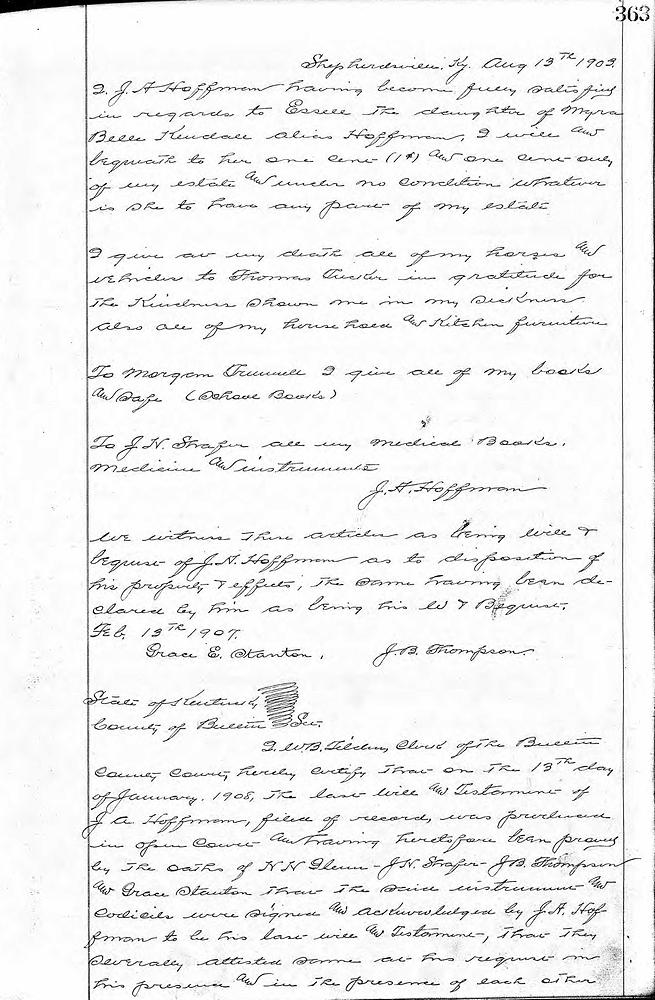 363
Shepherdsville, Ky. Aug 13th 1903.
I. J. A Hoffman having become fully satisfied
in regards to Essell the daughter of Myra
Belle Kendall alias Hoffman, I will and
bequeath to her one cent (1¢) and one cent only
of my estate and under no condition whatever
is she to have any part of my estate
I give at my death all of my horses and
vehicles to Thomas Tucker in gratitude for
the Kindness shown me in my sickness
also all of my house hold and Kitchen furniture
To Morgan Trunnell I give all of my books
and safe (School Books)
To J. H. Shafer all my medical Books,
medicine and instruments
J. A. Hoffman
We witness these articles as being will &
bequest of J. A. Hoffman as to disposition of
his property & effects, the same having been de-
clared by him as being his W & Bequest,
Feb. 13th 1907.
Grace E. Stanton. J. B. Thompson.
State of Kentucky
County of Bullitt Sct.
I. W.B. Tilden, Clerk of the Bullitt
County Court, hereby certify that on the 13th day
of January. 1908, the last will and Testament of
J A. Hoffman, filed of record, was produced
in open Court and having heretofore been proved
by the oaths of N N Glenn - J. H. Shafer - J B. Thompson
and Grace Stanton that the said instrument and
Codicils were signed and acknowledged by J. A. Hof-
fman to be his last will and Testament, that they
severally attested same at his request in
his presence and in the presence of each other